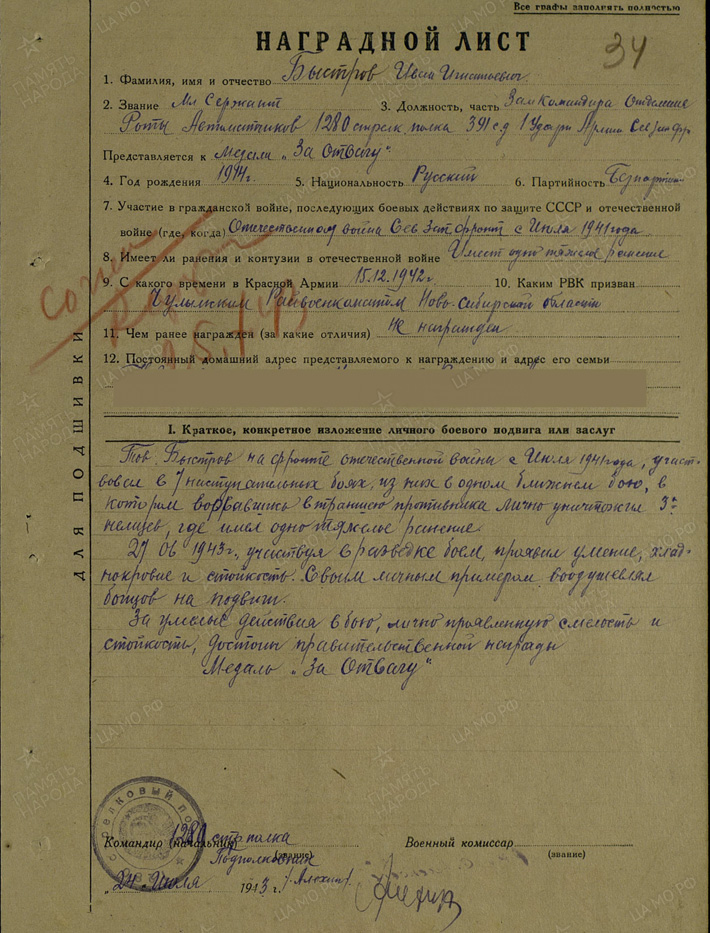 Все графы заполнять полностью
НАГРАДНОЙ ЛИСТ
34
1. Фамилия, имя и отчество Быстров Иван Игнатьевич
2. Звание Мл Сержант 3. Должность, часть Зам Командира Отделения
Роты Автоматчиков 1280 стрелк. полка 391 с.д 1 Ударн Армии Сев Зап Фр
Представляется к Медали „За Отвагу"
4. Год рождения 1914г. 5. Национальность Русский 6. Партийность
7. Участие в гражданской войне, последующих боевых действиях по защите СССР и отечественной
войне (где, когда) Отечественной война Сев Зап фронт с Июля 1941 года
8. Имеет ли ранения и контузии в отечественной войне Имеет одно тяжелое ранение
9. С какого времени в Красной Армии 15.12.1942г. 10. Каким РВК призван
Чулымским Райвоенкоматом Ново-Сибирской области
11. Чем ранее награжден (за какие отличия) не награжден
12. Постоянный домашний адрес представляемого к награждению и адрес его семьи
ДЛЯ ПОДШИВКИ
I. Краткое, конкретное изложение личного боевого подвига или заслуг
Тов. Быстров на фронте отечественной войны с Июля 1941 года, участ-
вовал в 7 наступательных боях, из них в одном ближнем бою, в
котором ворвавшись в траншею противника лично уничтожил 3х
немцев, где имел одно тяжелое ранение.
27 06 1943г., участвуя в разведке боем, проявил умение, хлад-
нокровие и стойкость. Своим личным примером воодушевлял
бойцов на подвиги.
За умелые действия в бою, лично проявленную смелость и
стойкость, достоин правительственной награды
Медаль „За Отвагу"
СТРЕЛКОВЫЙ
Командир (начальник) 1280 стр полка Военный комиссар
(звание) (звание)
Подполковник
„24" Июля 1943 г.
ПАМЯТЬ НАРОДА
ЦАМО.РФ